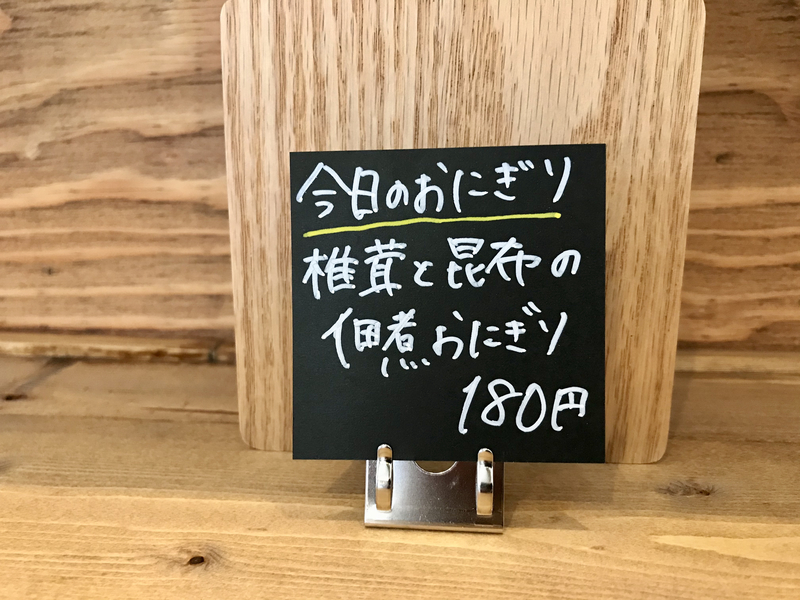 今日のおにぎり
椎茸と昆布の
佃煮おにぎり
180円